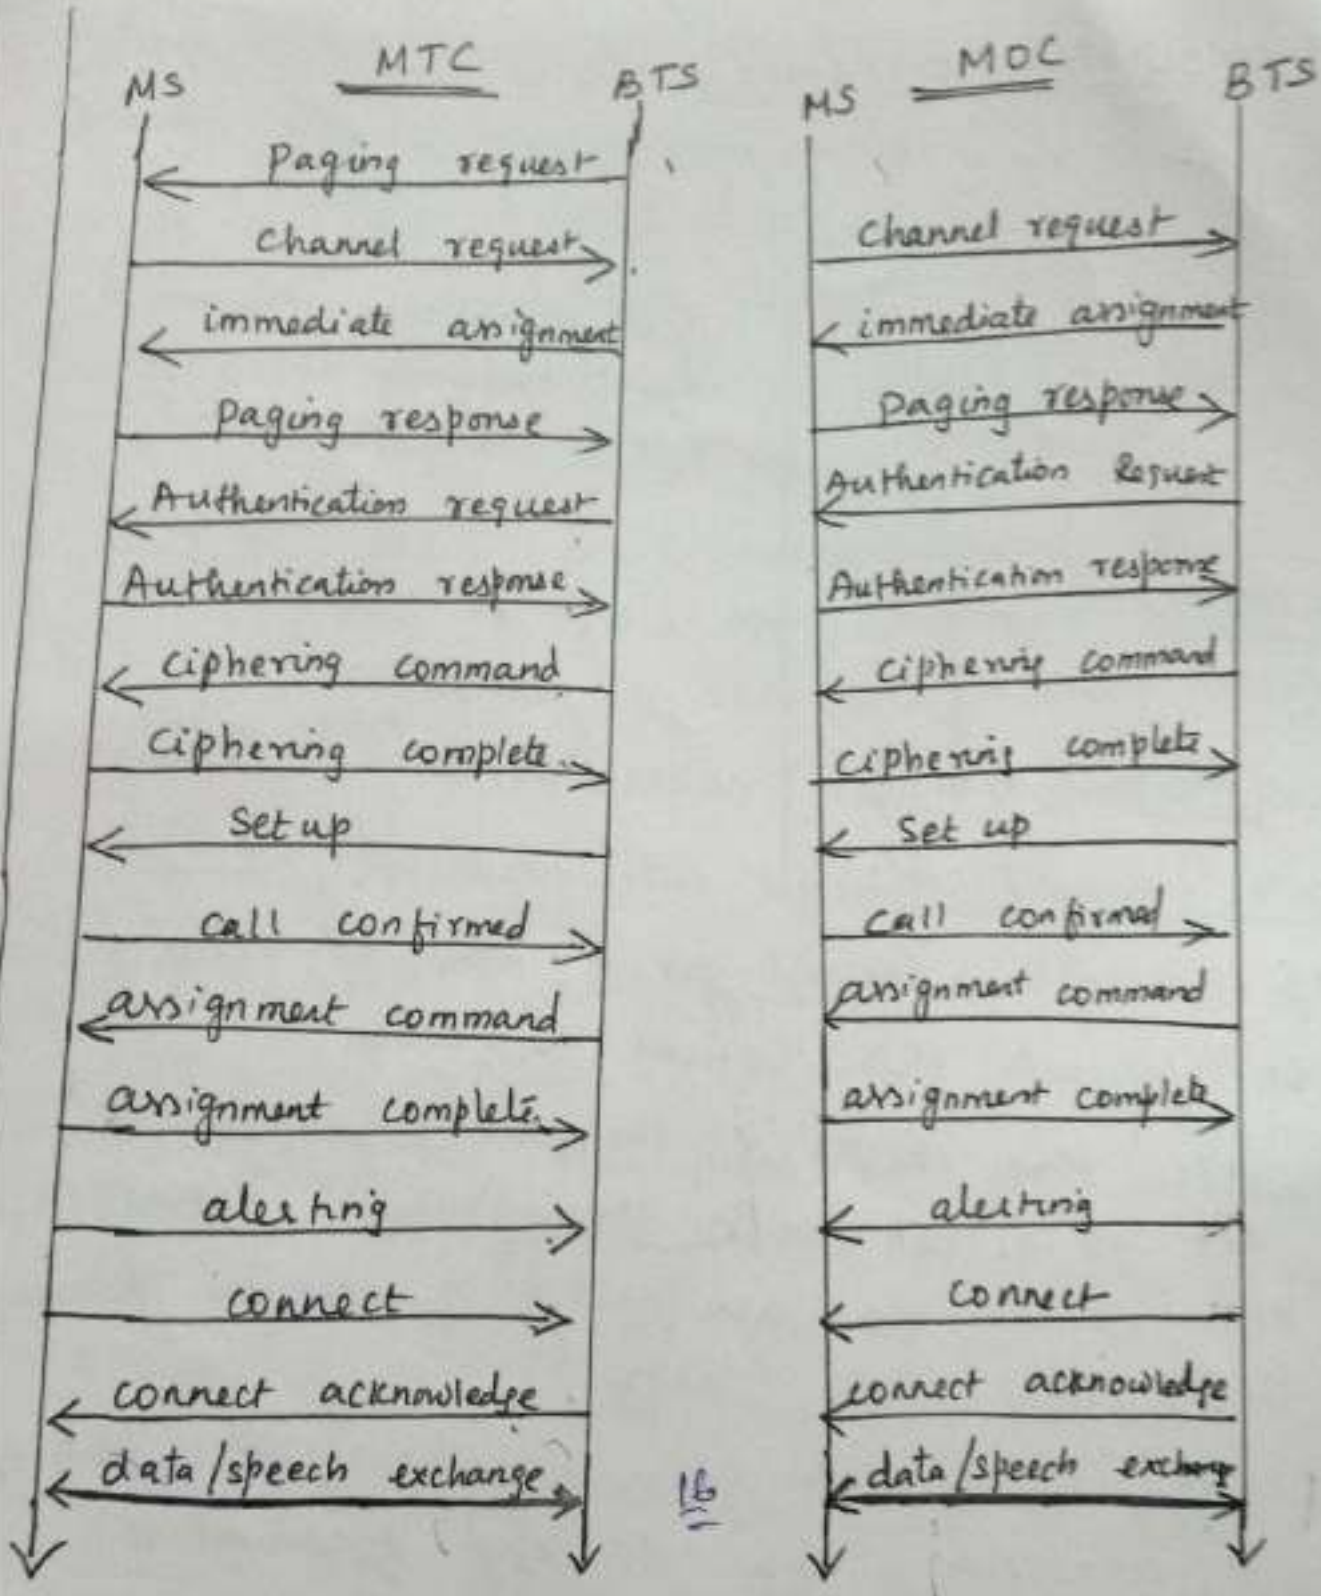 MTC
MS BTS
Paging request
Channel request
immediate assignment
Paging response
Authentication request
Authentication response
ciphering command
ciphering complete
Set up
call confirmed
assignment command
assignment complete
alerting
connect
connect acknowledge
data/speech exchange
MOC
MS BTS
Channel request
immediate assignment
Paging response
Authentication Request
Authentication response
ciphering command
ciphering complete
Set up
call confirmed
assignment command
assignment complete
alerting
connect
connect acknowledge
data/speech exchange
16